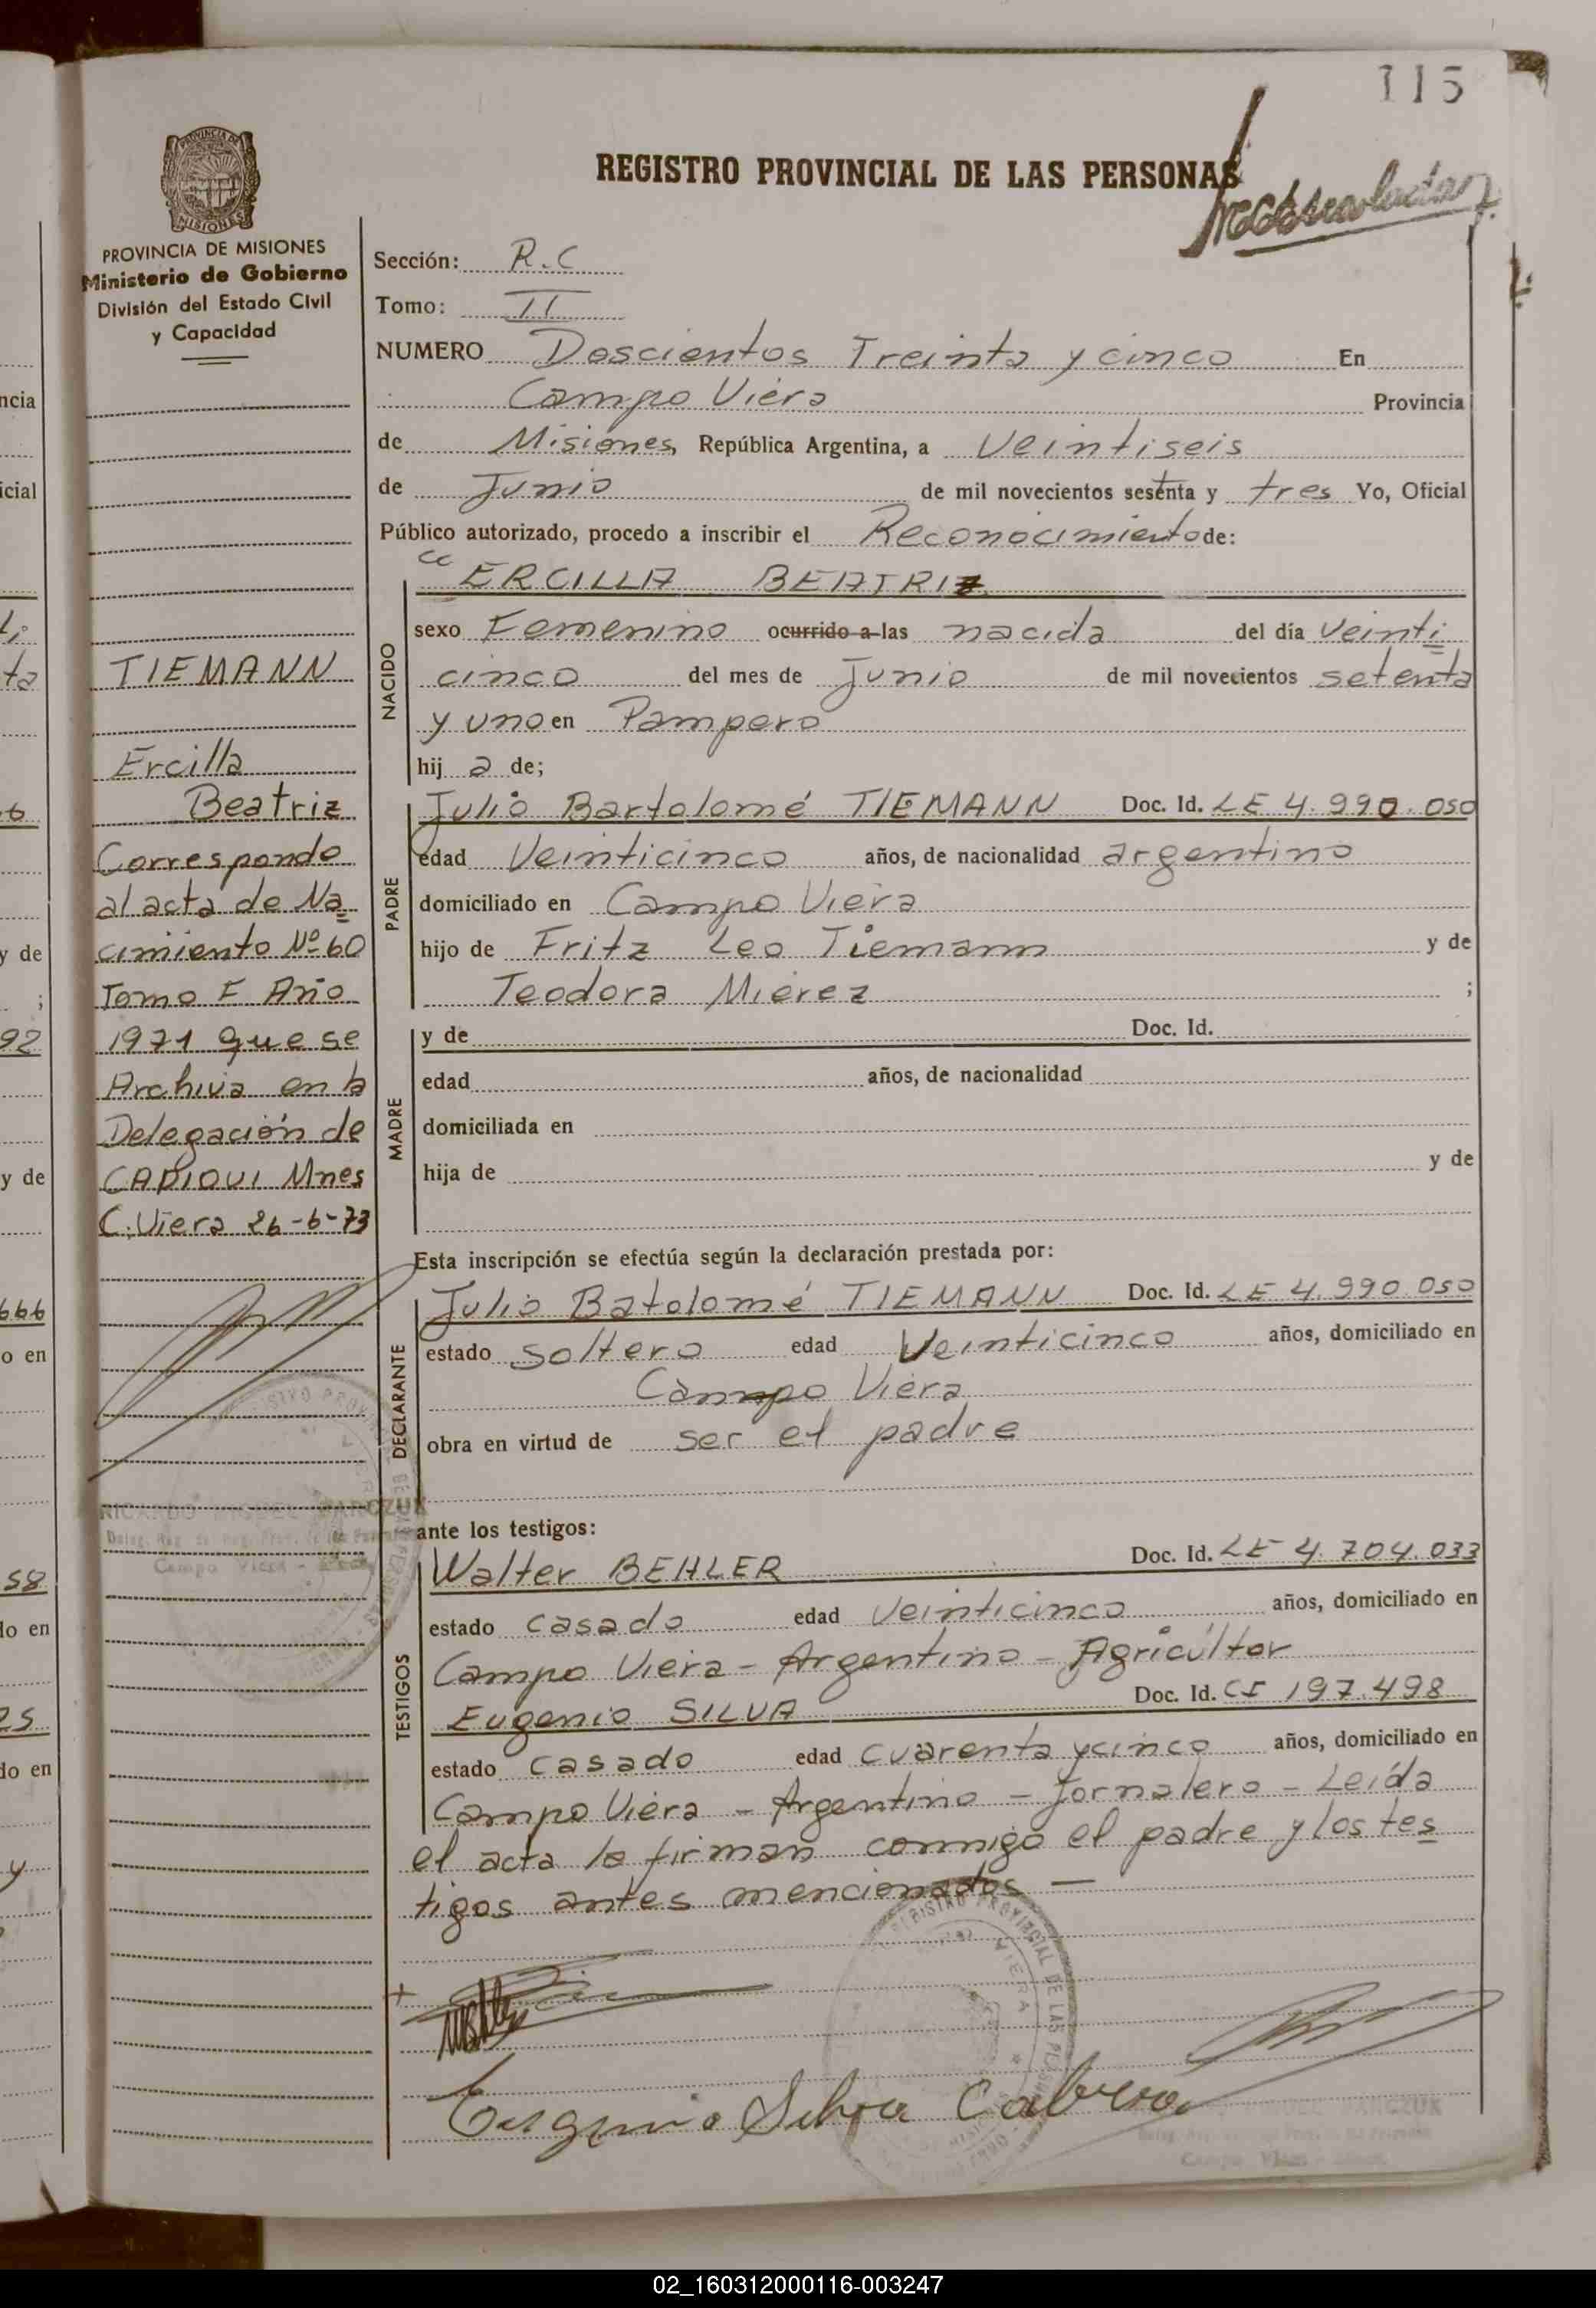 115
REGISTRO PROVINCIAL DE LAS PERSONAS
PROVINCIA DE MISIONES
Ministerio de Gobierno
División del Estado Civil
y Capacidad
Sección: R.C
Tomo: II
NUMERO Doscientos Treinta y cinco En
Campo Viera Provincia
de Misiones, República Argentina, a Veintiseis
de Junio de mil novecientos sesenta y tres Yo, Oficial
Público autorizado, procedo a inscribir el Reconocimiento de:
ERCILLA BEATRIZ
NACIDO
sexo Femenino ocurrido a las nacida del día Veinti
cinco del mes de Junio de mil novecientos setenta
y uno en Pampero
hij a de;
PADRE
Julio Bartolomé TIEMANN Doc. Id. LE 4.990.050
edad Veinticinco años, de nacionalidad argentino
domiciliado en Campo Viera
hijo de Fritz Leo Tiemann y de
Teodora Mierez ;
MADRE
y de Doc. Id.
edad años, de nacionalidad
domiciliada en
hija de y de
Esta inscripción se efectúa según la declaración prestada por:
DECLARANTE
Julio Batolomé TIEMANN Doc. Id. LE 4.990.050
estado Soltero edad Veinticinco años, domiciliado en
Campo Viera
obra en virtud de ser el padre
ante los testigos:
TESTIGOS
Walter BEHLER Doc. Id. LE 4.704.033
estado casado edad Veinticinco años, domiciliado en
Campo Viera - Argentino - Agricultor
Eugenio SILVA Doc. Id. CI 197.498
estado casado edad cuarenta y cinco años, domiciliado en
Campo Viera - Argentino - Jornalero - Leída
el acta la firman conmigo el padre y los tes
tigos antes mencionados —
Eugenio Silva Cabral
TIEMANN
Ercilla
Beatriz
Corresponde
al acta de Na
cimiento Nº 60
Tomo E Año
1971 que se
Archiva en la
Delegación de
CAPIOVI Mnes
C. Viera 26-6-73
RICARDO MIGUEL PANCZUK
Campo Viera
REGISTRO PROVINCIAL DE LAS PERSONAS
ncia
icial
ta
y de
;
92
y de
666
o en
58
do en
25
do en
y
02_160312000116-003247